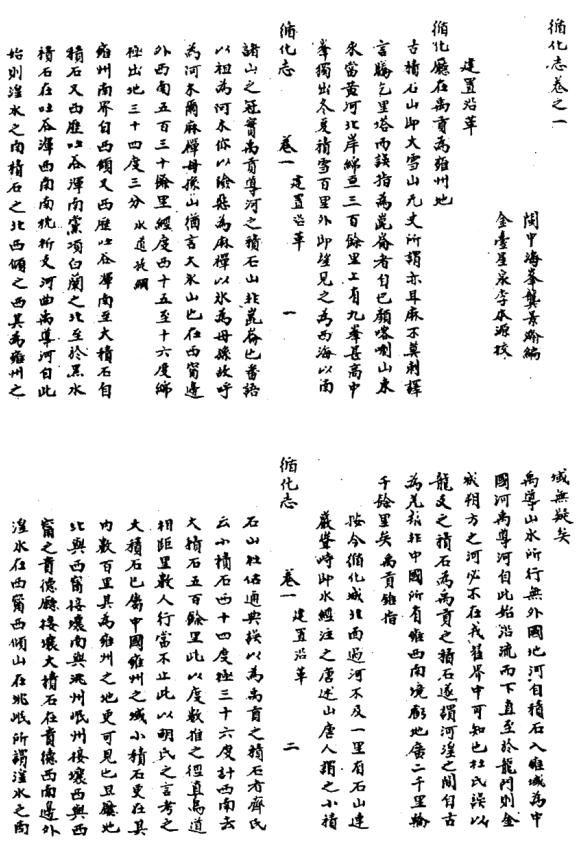 循化志卷之一
閩中海峯龔景瀚編
金臺星泉李本源校
建置沿革
循化廳在禹貢為雍州地
古積石山即大雪山元史所謂亦耳麻不莫剌譯
言騰乞里塔而誤指為崑崙者自巴顏喀喇山東
來當黃河北岸綿亘三百餘里上有九峯甚高中
峯獨出冬夏積雪百里外即望見之為西海以南
循化志 卷一 建置沿革 一
諸山之冠實禹貢導河之積石山非崑崙也番語
以祖為阿木你以險惡為麻禪以冰為母孫故呼
為阿木爾麻禪母孫山猶言大冰山也在西寧邊
外西南五百三十餘里經度西十五至十六度緯
極出地三十四度三分 水道提綱
雍州南界自西傾又西歷吐谷渾南至大積石自
積石又西歷吐谷渾南党項白蘭之北至於黑水
積石在吐谷渾西南南枕析支河曲禹導河自此
始則湟水之南積石之北西傾之西其為雍州之
域無疑矣
禹導山水所行無外國地河自積石入雍域為中
國河禹導河自此始沿流而下直至於龍門則金
城朔方之河必不在我雍界中可知也杜氏誤以
龍支之積石為禹貢之積石遂謂河湟之閒自古
為羌戎非中國所有雍西南境虧地廣二千里輪
千餘里矣 禹貢錐指
按今循化城北面過河不及一里有石山連
巖聳峙即水經注之唐述山唐人謂之小積
循化志 卷一 建置沿革 二
石山杜佑通典誤以為禹貢之積石者齊氏
云小積石西十四度極三十六度計西南去
大積石五百餘里此以度數推之徑直鳥道
相距里數人行當不止此以胡氏之言考之
大積石已屬中國雍州之域小積石更在其
內數百里其為雍州之地更可見也且廳地
北與西甯接壤南與洮州岷州接壤西與西
甯之貴德廳接壤大積石在貴德西南邊外
湟水在西甯西傾山在洮岷所謂湟水之南